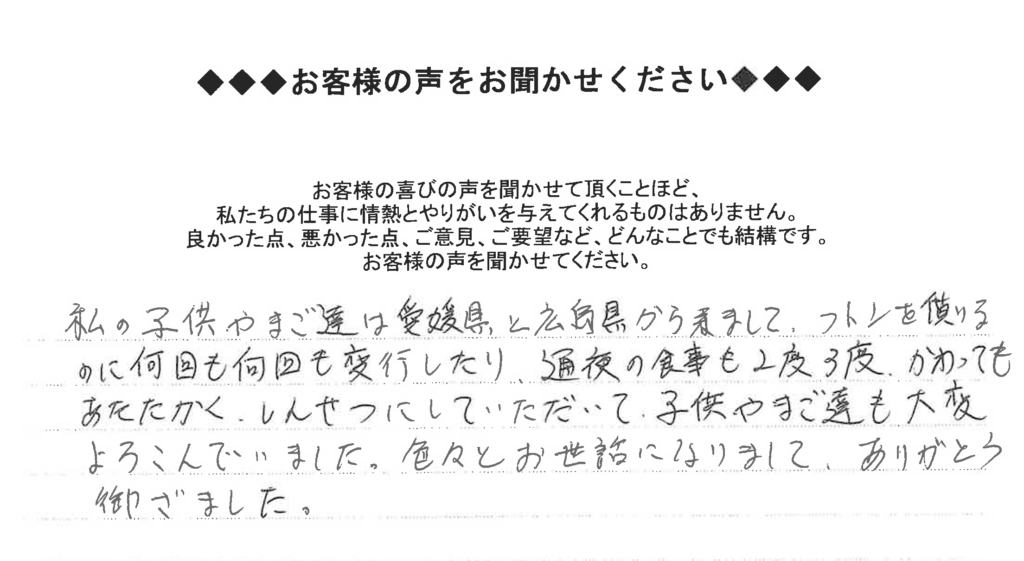 ◆◆◆お客様の声をお聞かせください◆◆◆
お客様の喜びの声を聞かせて頂くことほど、
私たちの仕事に情熱とやりがいを与えてくれるものはありません。
良かった点、悪かった点、ご意見、ご要望など、どんなことでも結構です。
お客様の声を聞かせてください。
私の子供やまご達は愛媛県と広島県から着まして、フトンを借りる
のに何回も何回も変行したり、通夜の食事も2度3度、かわっても
あたたかく、しんせつにしていただいて、子供やまご達も大変
よろこんでいました。色々とお世話になりまして、ありがとう
御ざました。